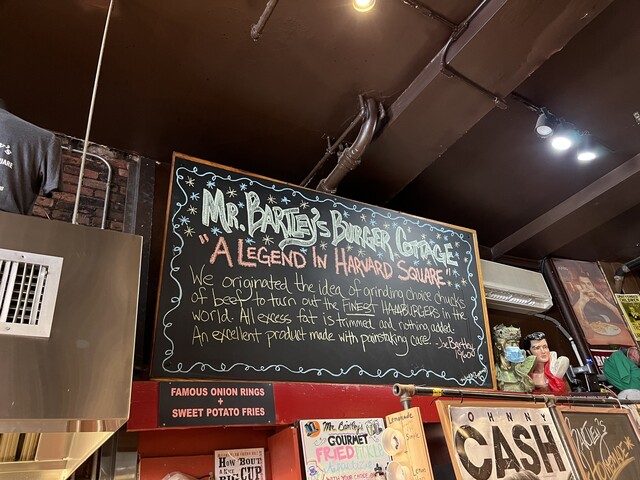 Mr. Bartley's Burger Cottage
"A Legend In Harvard Square."
We originated the idea of grinding choice chucks
of beef to turn out the FINEST HAMBURGERS in the
world. All excess fat is trimmed and nothing added.
An excellent product made with painstaking care. -Joe Bartley
1960
FAMOUS ONION RINGS
+
SWEET POTATO FRIES
HOW 'BOUT
A NICE
BIG CUP
Mr. Bartley's
GOURMET
FRIED PICKLE
Lemonade
JOHNNY
CASH